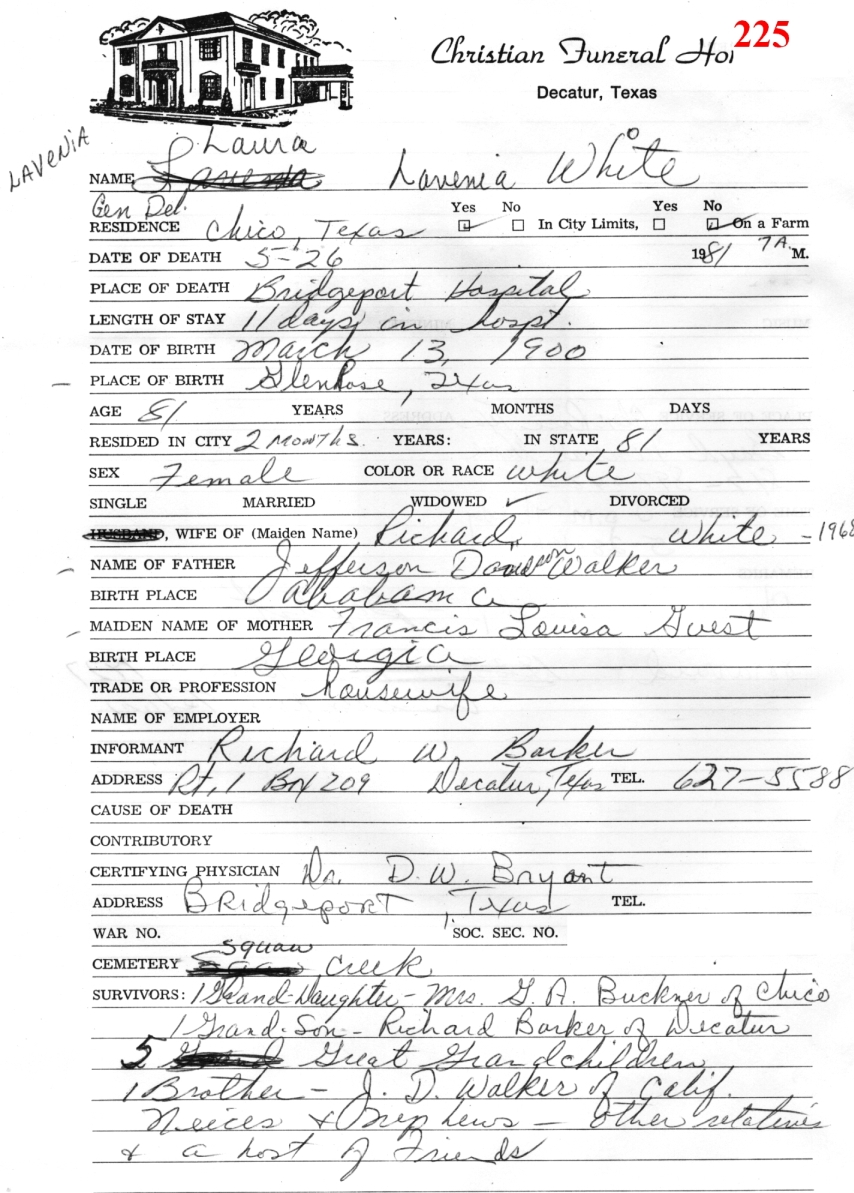 225
Christian Funeral Ho
Decatur, Texas
LAVENIA
Laura
NAME Lavenia White
Gen Del. Yes No Yes No
RESIDENCE Chico, Texas In City Limits, On a Farm
DATE OF DEATH 5-26 1981 7A. M.
PLACE OF DEATH Bridgeport Hospital
LENGTH OF STAY 11 days in hospt.
DATE OF BIRTH March 13, 1900
PLACE OF BIRTH GlenRose, Texas
AGE 81 YEARS MONTHS DAYS
RESIDED IN CITY 2 MONTHS. YEARS: IN STATE 81 YEARS
SEX Female COLOR OR RACE White
SINGLE MARRIED WIDOWED ✓ DIVORCED
HUSBAND, WIFE OF (Maiden Name) Richard White - 1968
NAME OF FATHER Jefferson Walker
BIRTH PLACE Alabama
MAIDEN NAME OF MOTHER Francis Louisa Guest
BIRTH PLACE Georgia
TRADE OR PROFESSION housewife
NAME OF EMPLOYER
INFORMANT Richard W. Barker
ADDRESS Rt. 1 Box 209 Decatur, Texas TEL. 627-5588
CAUSE OF DEATH
CONTRIBUTORY
CERTIFYING PHYSICIAN Dr. D.W. Bryant
ADDRESS BRidgepoRT, Texas TEL.
WAR NO. SOC. SEC. NO.
squaw
CEMETERY Creek
SURVIVORS: 1 Grand-Daughter - Mrs. G. A. Buckner of Chico
1 Grand-Son - Richard Barker of Decatur
5 Great Grandchildren
1 Brother - J. D. Walker of Calif.
Neices & Nephews - other relatives
& a host of Friends